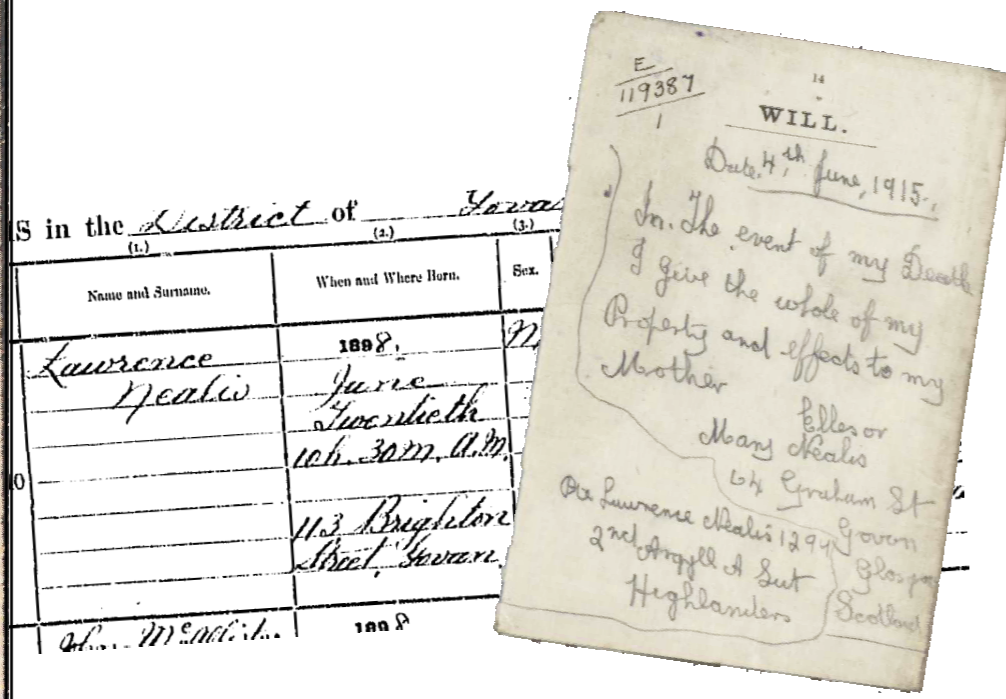 S in the District of Govan
(1.) (2.) (3.)
Name and Surname. When and Where Born. Sex.
Lawrence
Nealis
1898,
June
Twentieth
10h. 30m. A.M.
113 Brighton
Street, Govan
M.
0
1898
E
119387
1
14
WILL.
Date. 4th June, 1915.
In. The event of my Death
I give the whole of my
Property and effects to my
Mother
Mary Nealis
64 Graham St
Govan
Glasgow
Scotland
Pte Lawrence Nealis
2nd Argyll A Sut
Highlanders